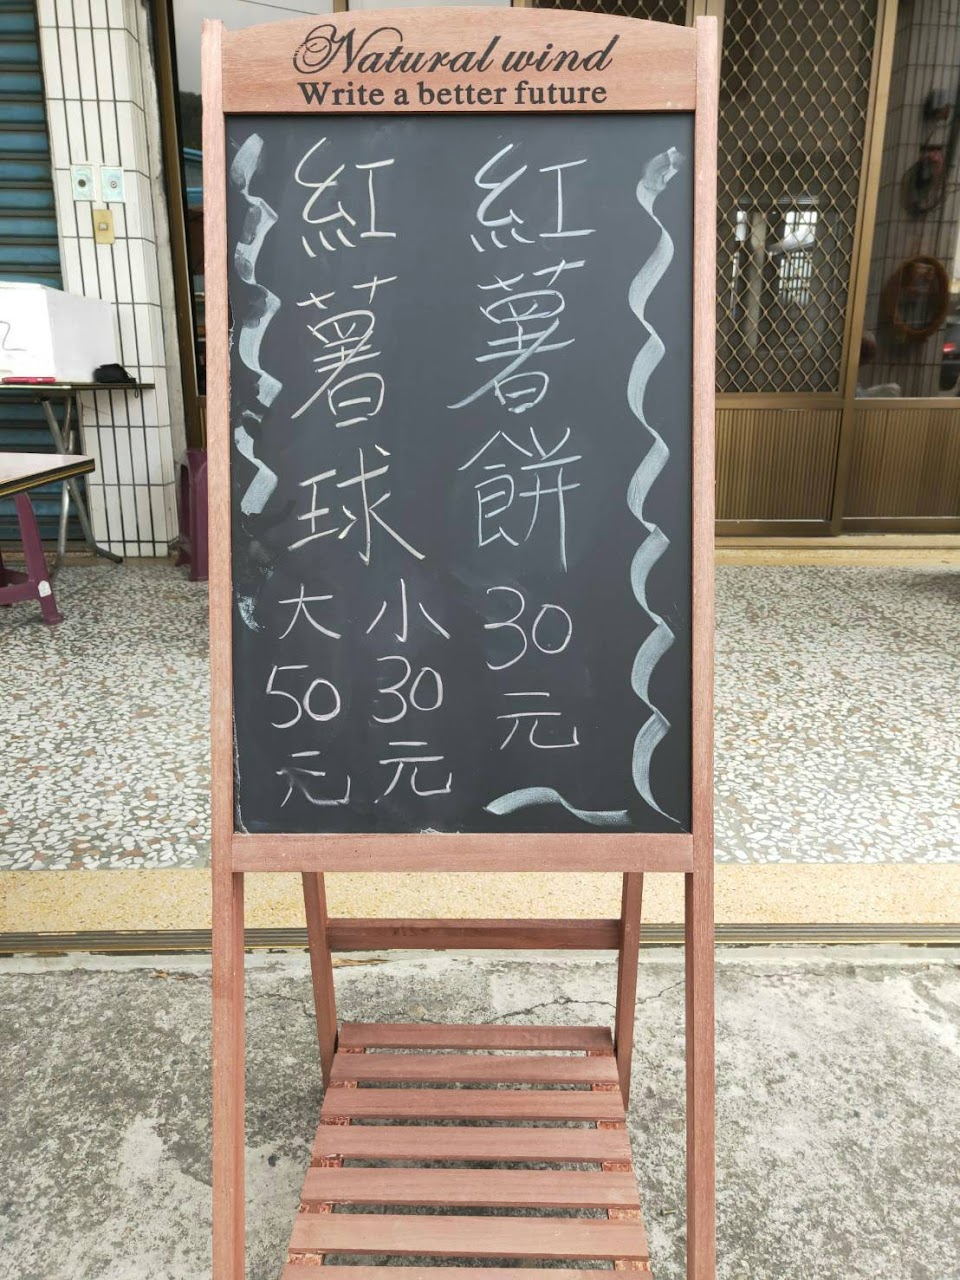 Natural wind
Write a better future
紅薯餅30元
紅薯球
小30元
大50元